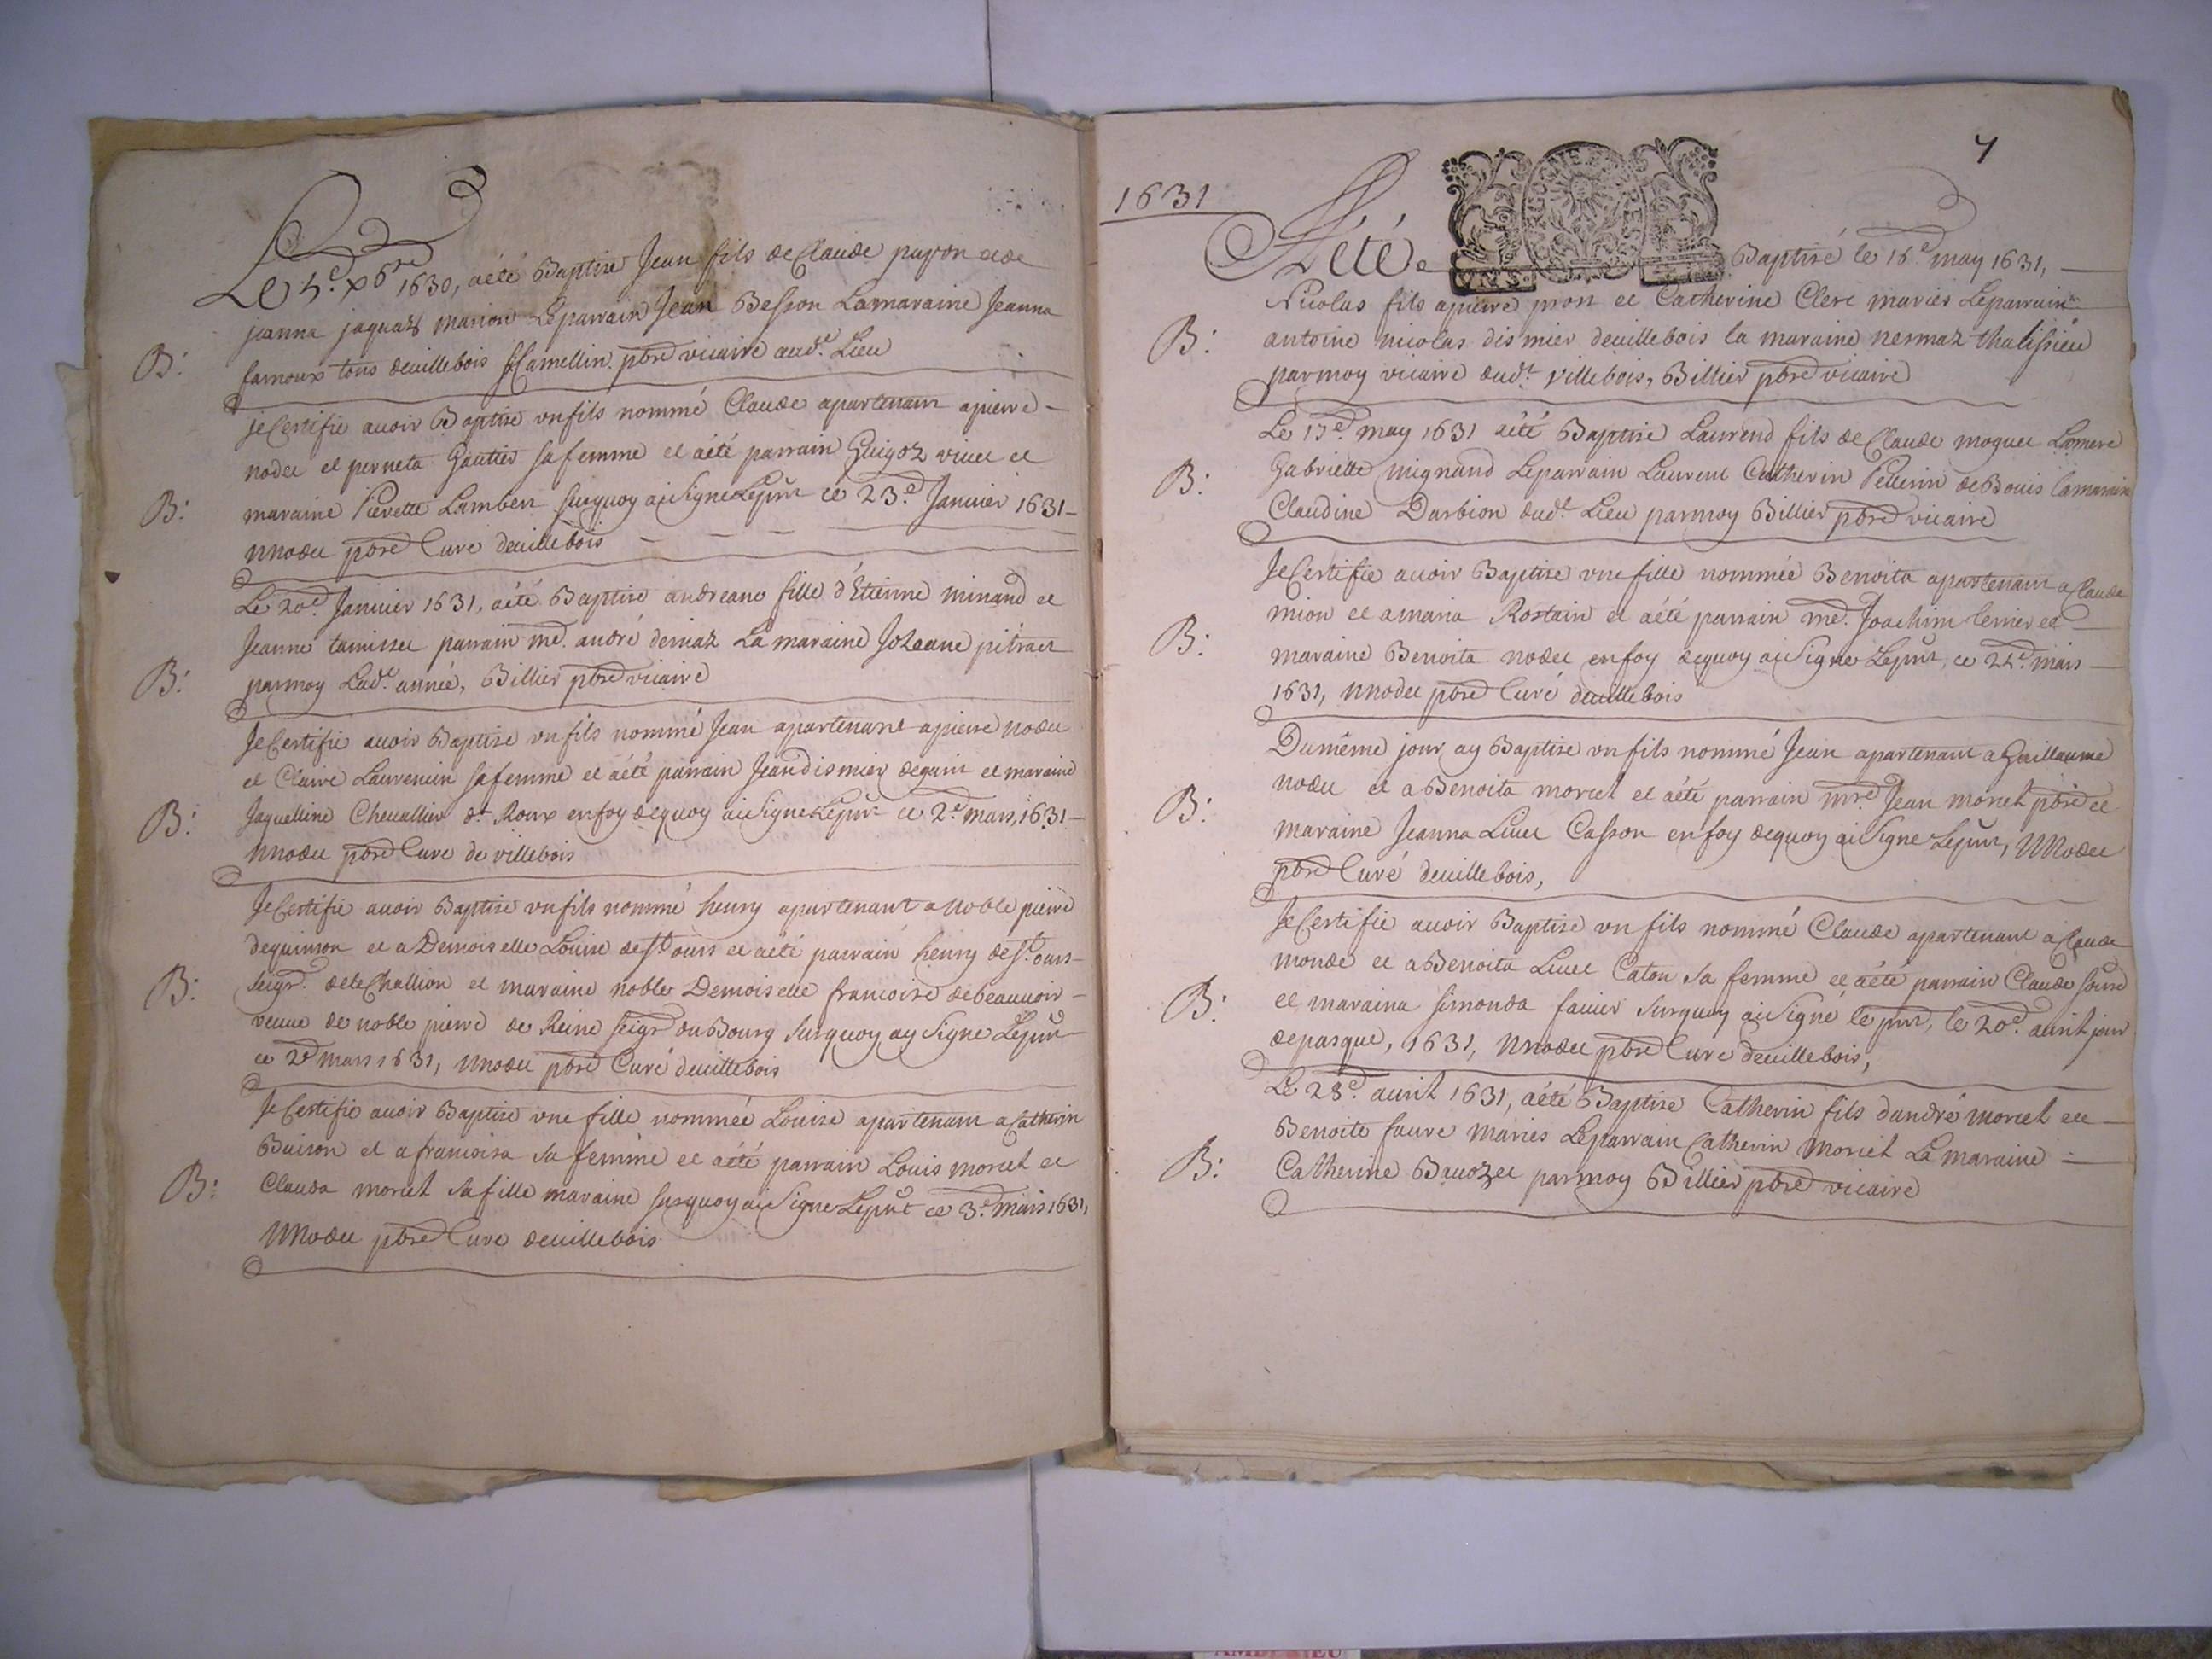 Le 5.e xbre 1630, aété Baptise Jean fils de Claude payon et de
janna jaquaz marion Leparrain Jean Besson Lamaraine Jeanna
famoux tous deuillebois Camellin pbre vicaire aud.t Lieu
B:
je Certifie auoir Baptise un fils nommé Claude apartenant apierre
nodet et perneta Gautier sa femme et aété parrain Guigoz viuet et
maraine Pierette Lambert surquoy ai Signe Lepnt ce 23.e Janvier 1631
B:
MNodet pbre Cure deuillebois
Le 20.e Janvier 1631, aété Baptise andreane fille d'Etienne minand et
Jeanne tamisset parrain me. andré derriaz La maraine Jozeane pitraet
parmoy Lad.e année, Billier pbre vicaire
B:
Je Certifie auoir Baptise vn fils nommé Jean apartenant apierre Nodet
et Claire Laurencin sa femme et aété parrain Jean dismier et maraine
Jaquelline Cheuallier d.t Roux enfoy dequoy ai Signe Lepnt ce 2.e mars, 1631
B:
MNodet pbre Cure de villebois
Je Certifie auoir Baptise vn fils nommé henry apartenant a Noble pierre
dequinson et a Demoiselle Louise de St ours et aeté parrain henry de St. ours
seigr. dele Challion et maraine noble Demoiselle francoise debeauuoir
B:
veuue de noble pierre de Reine seigr du Bourg surquoy ay Signe Lepnt
ce 2e mars 1631, MNodet pbre Curé deuillebois
Je Certifie auoir Baptise vne fille nommée Louise apartenant a Catherin
Buison et a francoisa sa femme et aété parrain Louis moriet et
Clauda moriet sa fille maraine surquoy ai Signe Lepnt ce 3.e mars 1631,
B:
MNodet pbre Cure deuillebois
7
1631
A été Baptisé le 16.e may 1631,
Nicolas fils apierre pron et Catherine Clerc mariés Leparrain
antoine nicolas dismier deuillebois la maraine nermaz thalissieu
B:
parmoy vicaire dud.t Villebois, Billier pbre vicaire
Le 17.e may 1631 aété Baptise Laurend fils de Claude moguet Lamere
Gabrielle mignand Leparrain Laurent Catherin Pellerin de Bouis Lamaraine
B:
Claudine Darbion dud.t Lieu parmoy Billier pbre vicaire
Je Certifie auoir Baptise vne fille nommée Benoita apartenant a Claude
mion et amaria Rostain et aété parrain me. Joachim et
maraine Benoita nodet enfoy dequoy ai Signe Lepnt, ce 24.e mars
B:
1631, MNodet pbre Curé deuillebois
Dumême jour ay Baptise vn fils nommé Jean apartenant a Guillaume
nodet et a Benoita moriet et aété parrain mre Jean moriet pbre et
B:
maraine Jeanna Liuet Casson enfoy dequoy ai Signe Lepnt, MNodet
pbre Curé deuillebois,
Je Certifie auoir Baptise vn fils nommé Claude apartenant a Claude
monde et a Benoita Liuet Caton sa femme et aété parrain Claude
B:
et maraina simonda fauier surquoy ai Signé le pnt, le 20.e auril jour
depasque, 1631, MNodet pbre Cure deuillebois,
Le 28.e auril 1631, aété Baptise Catherin fils dandré moriet et
Benoite faure mariés Leparrain Catherin Moriet La maraine
B:
Catherine Bauozet parmoy Billier pbre vicaire